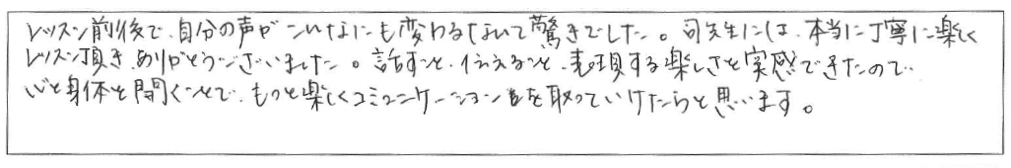 レッスン前後で、自分の声がこんなにも変わるなんて驚きでした。司先生には、本当に丁寧に楽しく
レッスン頂き、ありがとうございました。話すこと、伝えること、表現する楽しさを実感できたので
心と身体を開くことで、もっと楽しくコミュニケーションを取っていけたらと思います。